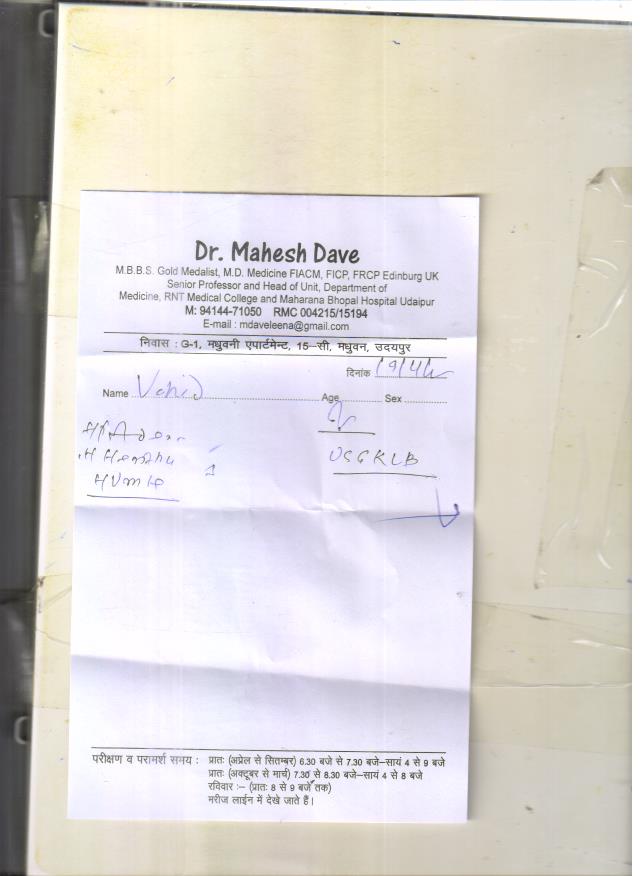 Dr. Mahesh Dave
M.B.B.S. Gold Medalist, M.D. Medicine FIACM, FICP, FRCP Edinburg UK
Senior Professor and Head of Unit, Department of
Medicine, RNT Medical College and Maharana Bhopal Hospital Udaipur
M: 94144-71050 RMC 004215/15194
E-mail : mdaveleena@gmail.com
निवास : G-1, मधुवनी एपार्टमेन्ट, 15-सी, मधुवन, उदयपुर
दिनांक
Name Vahid Age Sex
USG KUB
परीक्षण व परामर्श समय : प्रातः (अप्रेल से सितम्बर) 6.30 बजे से 7.30 बजे-सायं 4 से 9 बजे
प्रातः (अक्टूबर से मार्च) 7.30 से 8.30 बजे-सायं 4 से 8 बजे
रविवार :- (प्रातः 8 से 9 बजे तक)
मरीज लाईन में देखे जाते हैं।